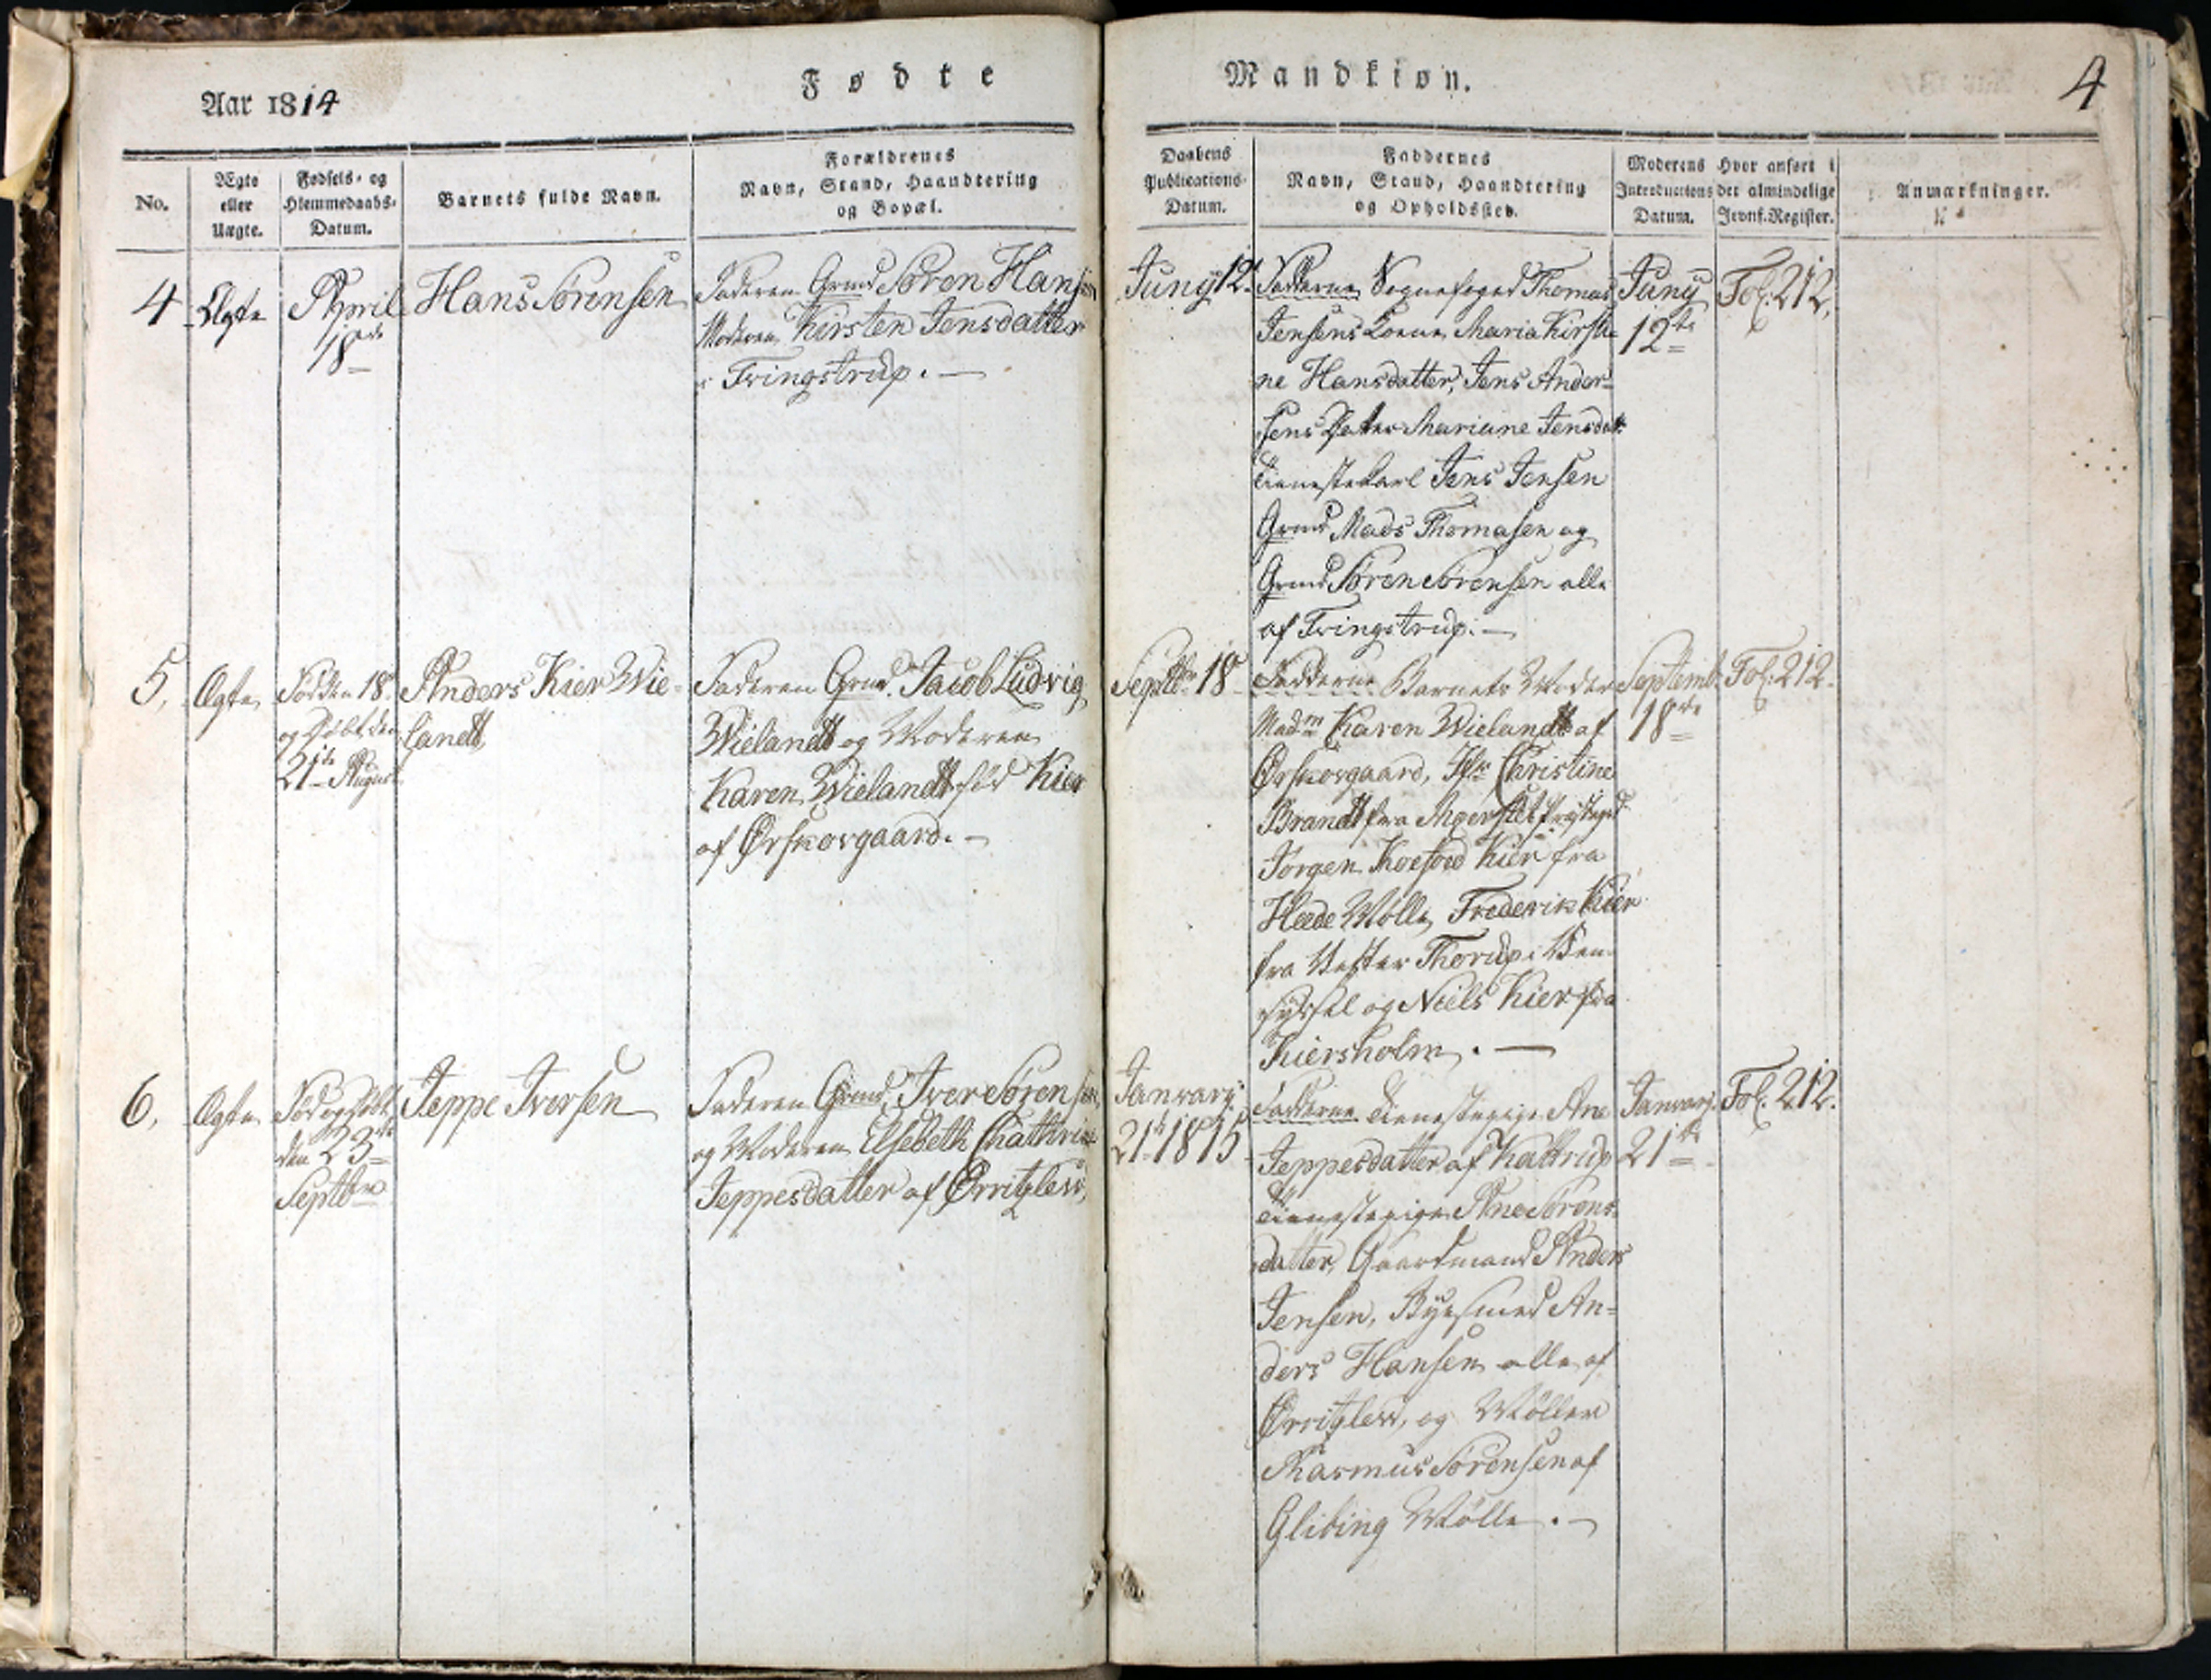 Aar 1814
Fødte
Mandkiøn.
4
No.
Ægte
eller
Uægte.
Fødsels- og
Hiemmedaabs-
Datum.
Barnets fulde Navn.
Forældrenes
Navn, Stand, Haandtering
og Bopæl.
Daabens
Publications-
Datum.
Faddernes
Navn, Stand, Haandtering
og Opholdssted.
Moderens
Introductions
Datum.
Hvor anført i
det almindelige
Jevnf.Register.
Anmærkninger.
4
Ægte
April
18de
Hans Sørensen
Faderen Grmd Søren Hansen
Moderen Kirsten Jensdatter
i Tringstrup. —
Juny 12te
Fadderne Sognefoged Thomas
Jensens Kone Maria Kirsti
ne Hansdatter, Jens Ander-
sens Datter Mariane Jensdatt:
Tienestekarl Jens Jensen
Grmd Mads Thomasen og
Grmd Søren Sørensen alle
af Tringstrup. —
Juny
12te
Fol. 212.
5.
Ægte
Fød den 18
og døbt den
21de August
Anders Kier Wie-
landt
Faderen Grmd. Jacob Ludvig
Wielandt og Moderen
Karen Wielandt fød Kier
af Ørskovgaard. —
Septbr 18
Fadderne Barnets Moder
Madm Karen Wielandt af
Ørskovgaard, Jfr Christine
Brandt fra
Jørgen Koefoed Kier fra
Hæde Mølle, Frederik Kier
fra Vester Thorup i Ven-
syssel og Niels Kier fra
Kiersholm. —
Septemb.
18de
Fol. 212.
6.
Ægte
Fød og døbt
den 23de
Septbr
Jeppe Iversen
Faderen Grmd. Iver Sørensen
og Moderen Elsebeth Chathrine
Jeppesdatter af Ørritzlew,
Januarj
21de 1815
Fadderne Tienestepige Ane
Jeppesdatter af Kattrup
Tienestepige Ane Sørens-
datter, Gaardmand Anders
Jensen, Byesmed An-
ders Hansen alle af
Ørritzlew, og Møller
Rasmus Sørensen af
Glibing Mølle. —
Januarj.
21de
Fol. 212.